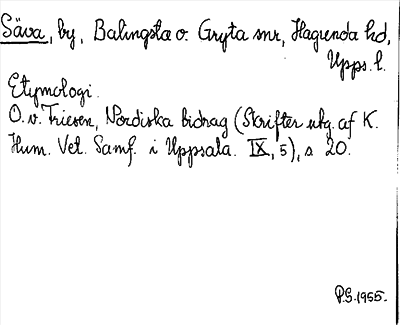 Säva, by, Balingsta o. Gryta snr, Hagunda hd,
Upps. l.
Etymologi.
O. v. Friesen, Nordiska bidrag (Skrifter utg. af K.
Hum. Vet. Samf. i Uppsala. IX, 5), s 20.
P.G. 1955.